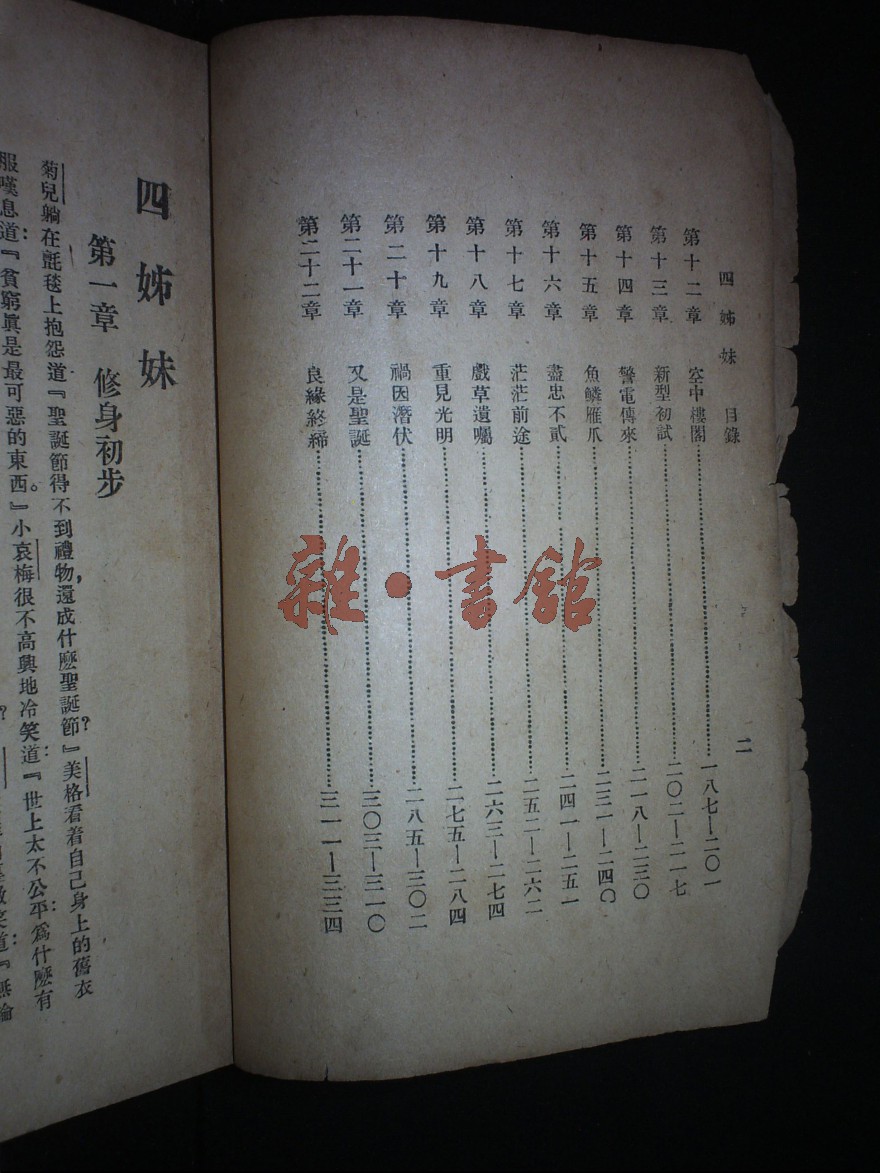 四姊妹 目錄 二
第十二章 空中樓閣……一八七—二〇一
第十三章 新型初試……二〇二—二一七
第十四章 警電傳來……二一八—二三〇
第十五章 魚鱗雁爪……二三一—二四〇
第十六章 盡忠不貳……二四一—二五一
第十七章 茫茫前途……二五二—二六二
第十八章 戲草遺囑……二六三—二七四
第十九章 重見光明……二七五—二八四
第二十章 禍因潛伏……二八五—三〇二
第二十一章 又是聖誕……三〇三—三一〇
第二十二章 良緣終締……三一一—三三四
四姊妹
第一章 修身初步
菊兒躺在氈毯上抱怨道『聖誕節得不到禮物,還成什麽聖誕節?』美格看着自己身上的舊衣
服嘆息道:『貧窮眞是最可惡的東西。』小哀梅很不高興地冷笑道:『世上太不公平:爲什麽有
雜·書館